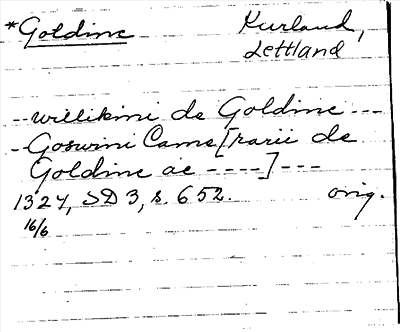 *Goldinc
Kurland,
Lettland
-- willikini de Goldinc ---
-- Goswini Came[rarii de
Goldinc ac ----] ---
1324, SD 3, s. 652. orig.
16/6